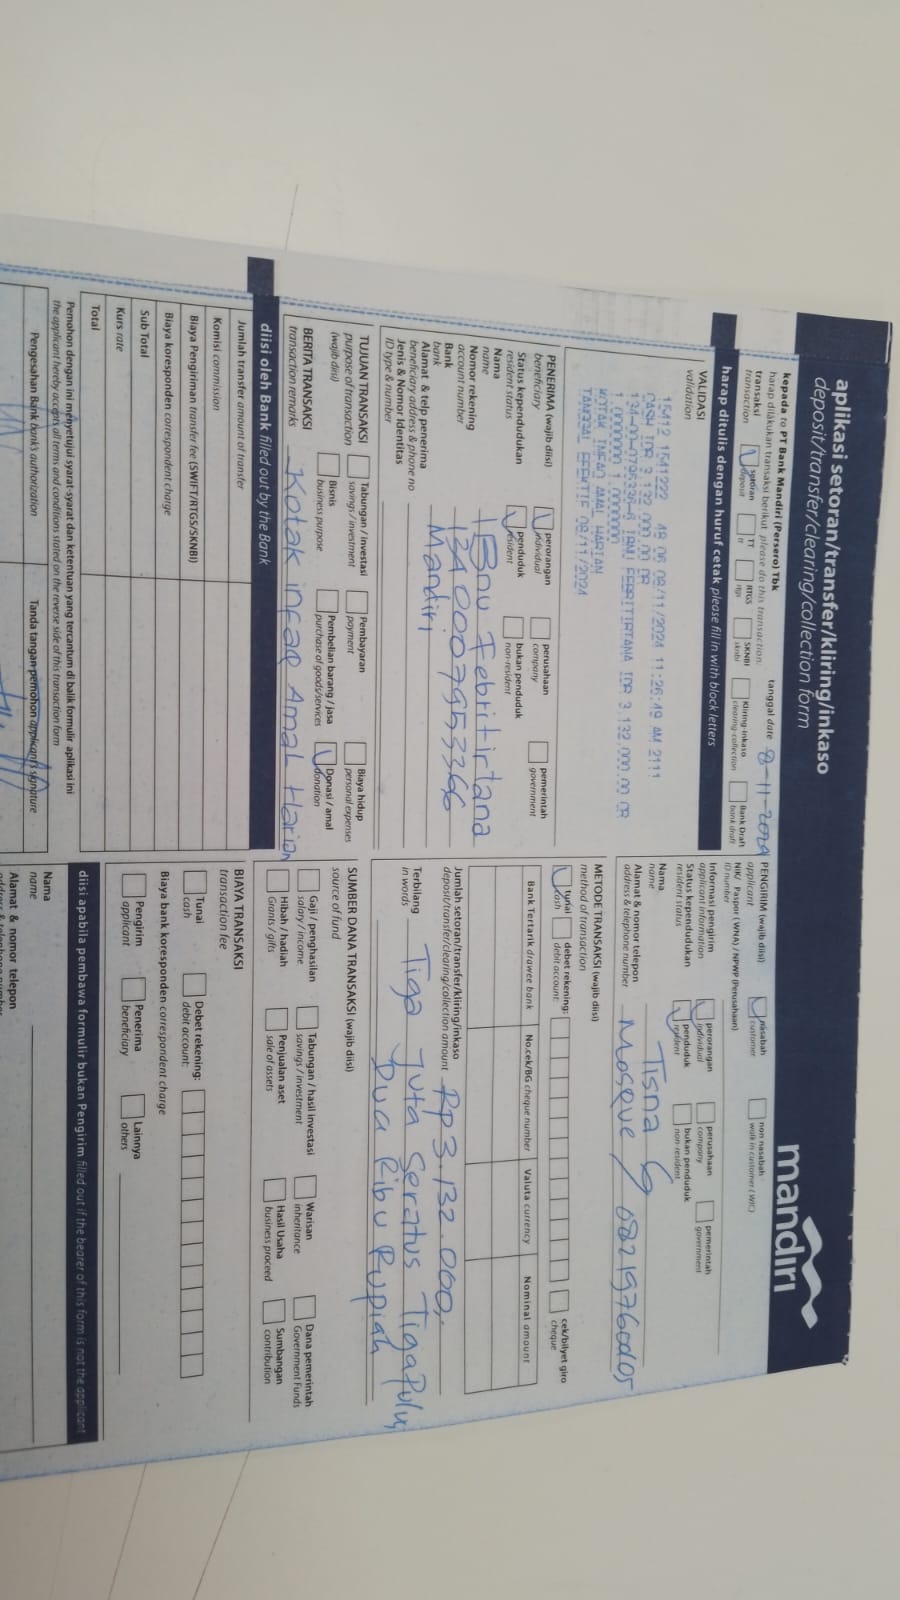 aplikasi setoran/transfer/kliring/inkaso
deposit/transfer/clearing/collection form
mandiri
kepada to PT Bank Mandiri (Persero) Tbk
harap dilakukan transaksi berikut please do this transaction:
tanggal date 8-11-2024
transaksi
transaction
setoran
deposit
TT
tt
RTGS
rtgs
SKNBI
sknbi
Kliring-inkaso
clearing-collection
Bank Draft
bank draft
harap ditulis dengan huruf cetak please fill in with block letters
VALIDASI
validation
15412 1541222 48 06 08/11/2024 11:26:49 AM 2111
CASH IDR 3,132,000.00 DR
KOTAK INFAQ AMAL HARIAN
TANGGAL EFEKTIF 08/11/2024
PENERIMA (wajib diisi)
beneficiary
perorangan
individual
perusahaan
company
pemerintah
government
Status kependudukan
resident status
penduduk
resident
bukan penduduk
non-resident
Nama
name
Ibnu Febritirtana
Nomor rekening
account number
1340007953366
Bank
bank
Mandiri
Alamat & telp penerima
beneficiary address & phone no
Jenis & Nomor Identitas
ID type & number
TUJUAN TRANSAKSI
purpose of transaction
(wajib diisi)
Tabungan / investasi
savings / investment
Pembayaran
payment
Biaya hidup
personal expenses
Bisnis
business purpose
Pembelian barang / jasa
purchase of goods/services
Donasi / amal
donation
BERITA TRANSAKSI
transaction remarks
Kotak infaq Amal Harian
diisi oleh Bank filled out by the Bank
Jumlah transfer amount of transfer
Komisi commission
Biaya Pengiriman transfer fee (SWIFT/RTGS/SKNBI)
Biaya koresponden correspondent charge
Sub Total
Kurs rate
Total
Pemohon dengan ini menyetujui syarat-syarat dan ketentuan yang tercantum di balik formulir aplikasi ini
the applicant hereby accepts all terms and conditions stated on the reverse side of this transaction form
Pengesahan Bank bank's authorization
Tanda tangan pemohon applicant's signature
PENGIRIM (wajib diisi)
applicant
nasabah
customer
non nasabah
walk in customer (WIC)
NIK/ Paspor (WNA) / NPWP (Perusahaan)
ID number
Informasi pengirim
applicant information
perorangan
individual
perusahaan
company
pemerintah
government
Status kependudukan
resident status
penduduk
resident
bukan penduduk
non-resident
Nama
name
Tisna
Alamat & nomor telepon
address & telephone number
Mosque
METODE TRANSAKSI (wajib diisi)
method of transaction
tunai
cash
debet rekening:
debit account:
cek/bilyet giro
cheque
Bank Tertarik drawee bank
No.cek/BG cheque number
Valuta currency
Nominal amount
Jumlah setoran/transfer/kliring/inkaso
deposit/transfer/clearing/collection amount
Rp 3.132.000,
Terbilang
in words
Tiga Juta Seratus Tiga Puluh
Dua Ribu Rupiah
SUMBER DANA TRANSAKSI (wajib diisi)
source of fund
Gaji / penghasilan
salary / income
Tabungan / hasil investasi
savings / investment
Warisan
inheritance
Dana pemerintah
Government Funds
Hibah / hadiah
Grants / gifts
Penjualan aset
sale of assets
Hasil Usaha
business proceed
Sumbangan
contribution
BIAYA TRANSAKSI
transaction fee
Tunai
cash
Debet rekening:
debit account:
Biaya bank koresponden correspondent charge
Pengirim
applicant
Penerima
beneficiary
Lainnya
others
diisi apabila pembawa formulir bukan Pengirim filled out if the bearer of this form is not the applicant
Nama
name
Alamat & nomor telepon